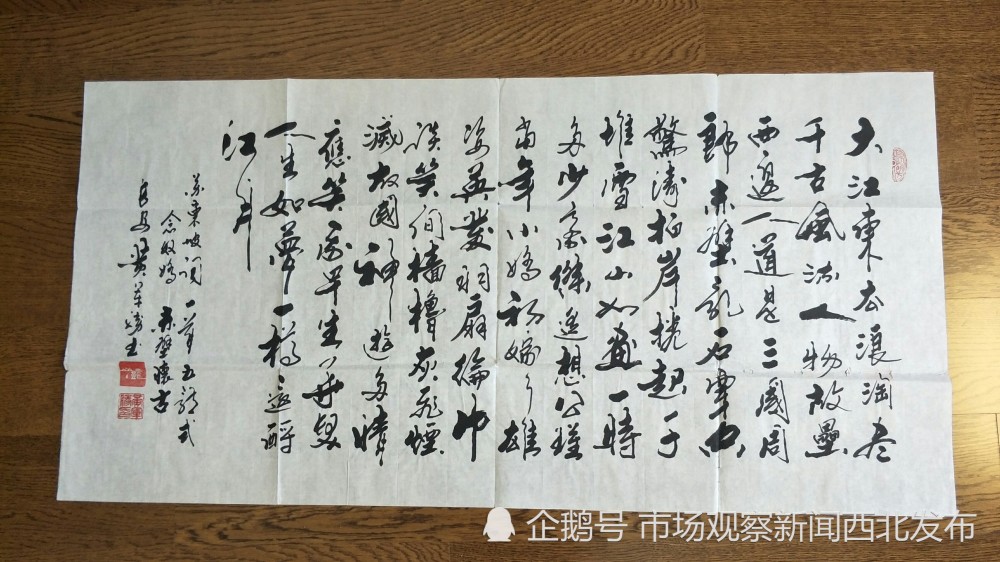 大江東去浪淘尽
千古風流人物故壘
西邊人道是三國周
郎赤壁乱石穿空
驚濤拍岸捲起千
堆雪江山如畫一時
多少豪傑遥想公瑾
当年小嬌初嫁了雄
姿英發羽扇綸巾
談笑间檣櫓灰飛煙
滅故國神遊多情
應笑我早生華髮
人生如夢一樽還酹
江月
蘇東坡詞一首
念奴嬌 赤壁懷古
長安
企鹅号 市场观察新闻西北发布